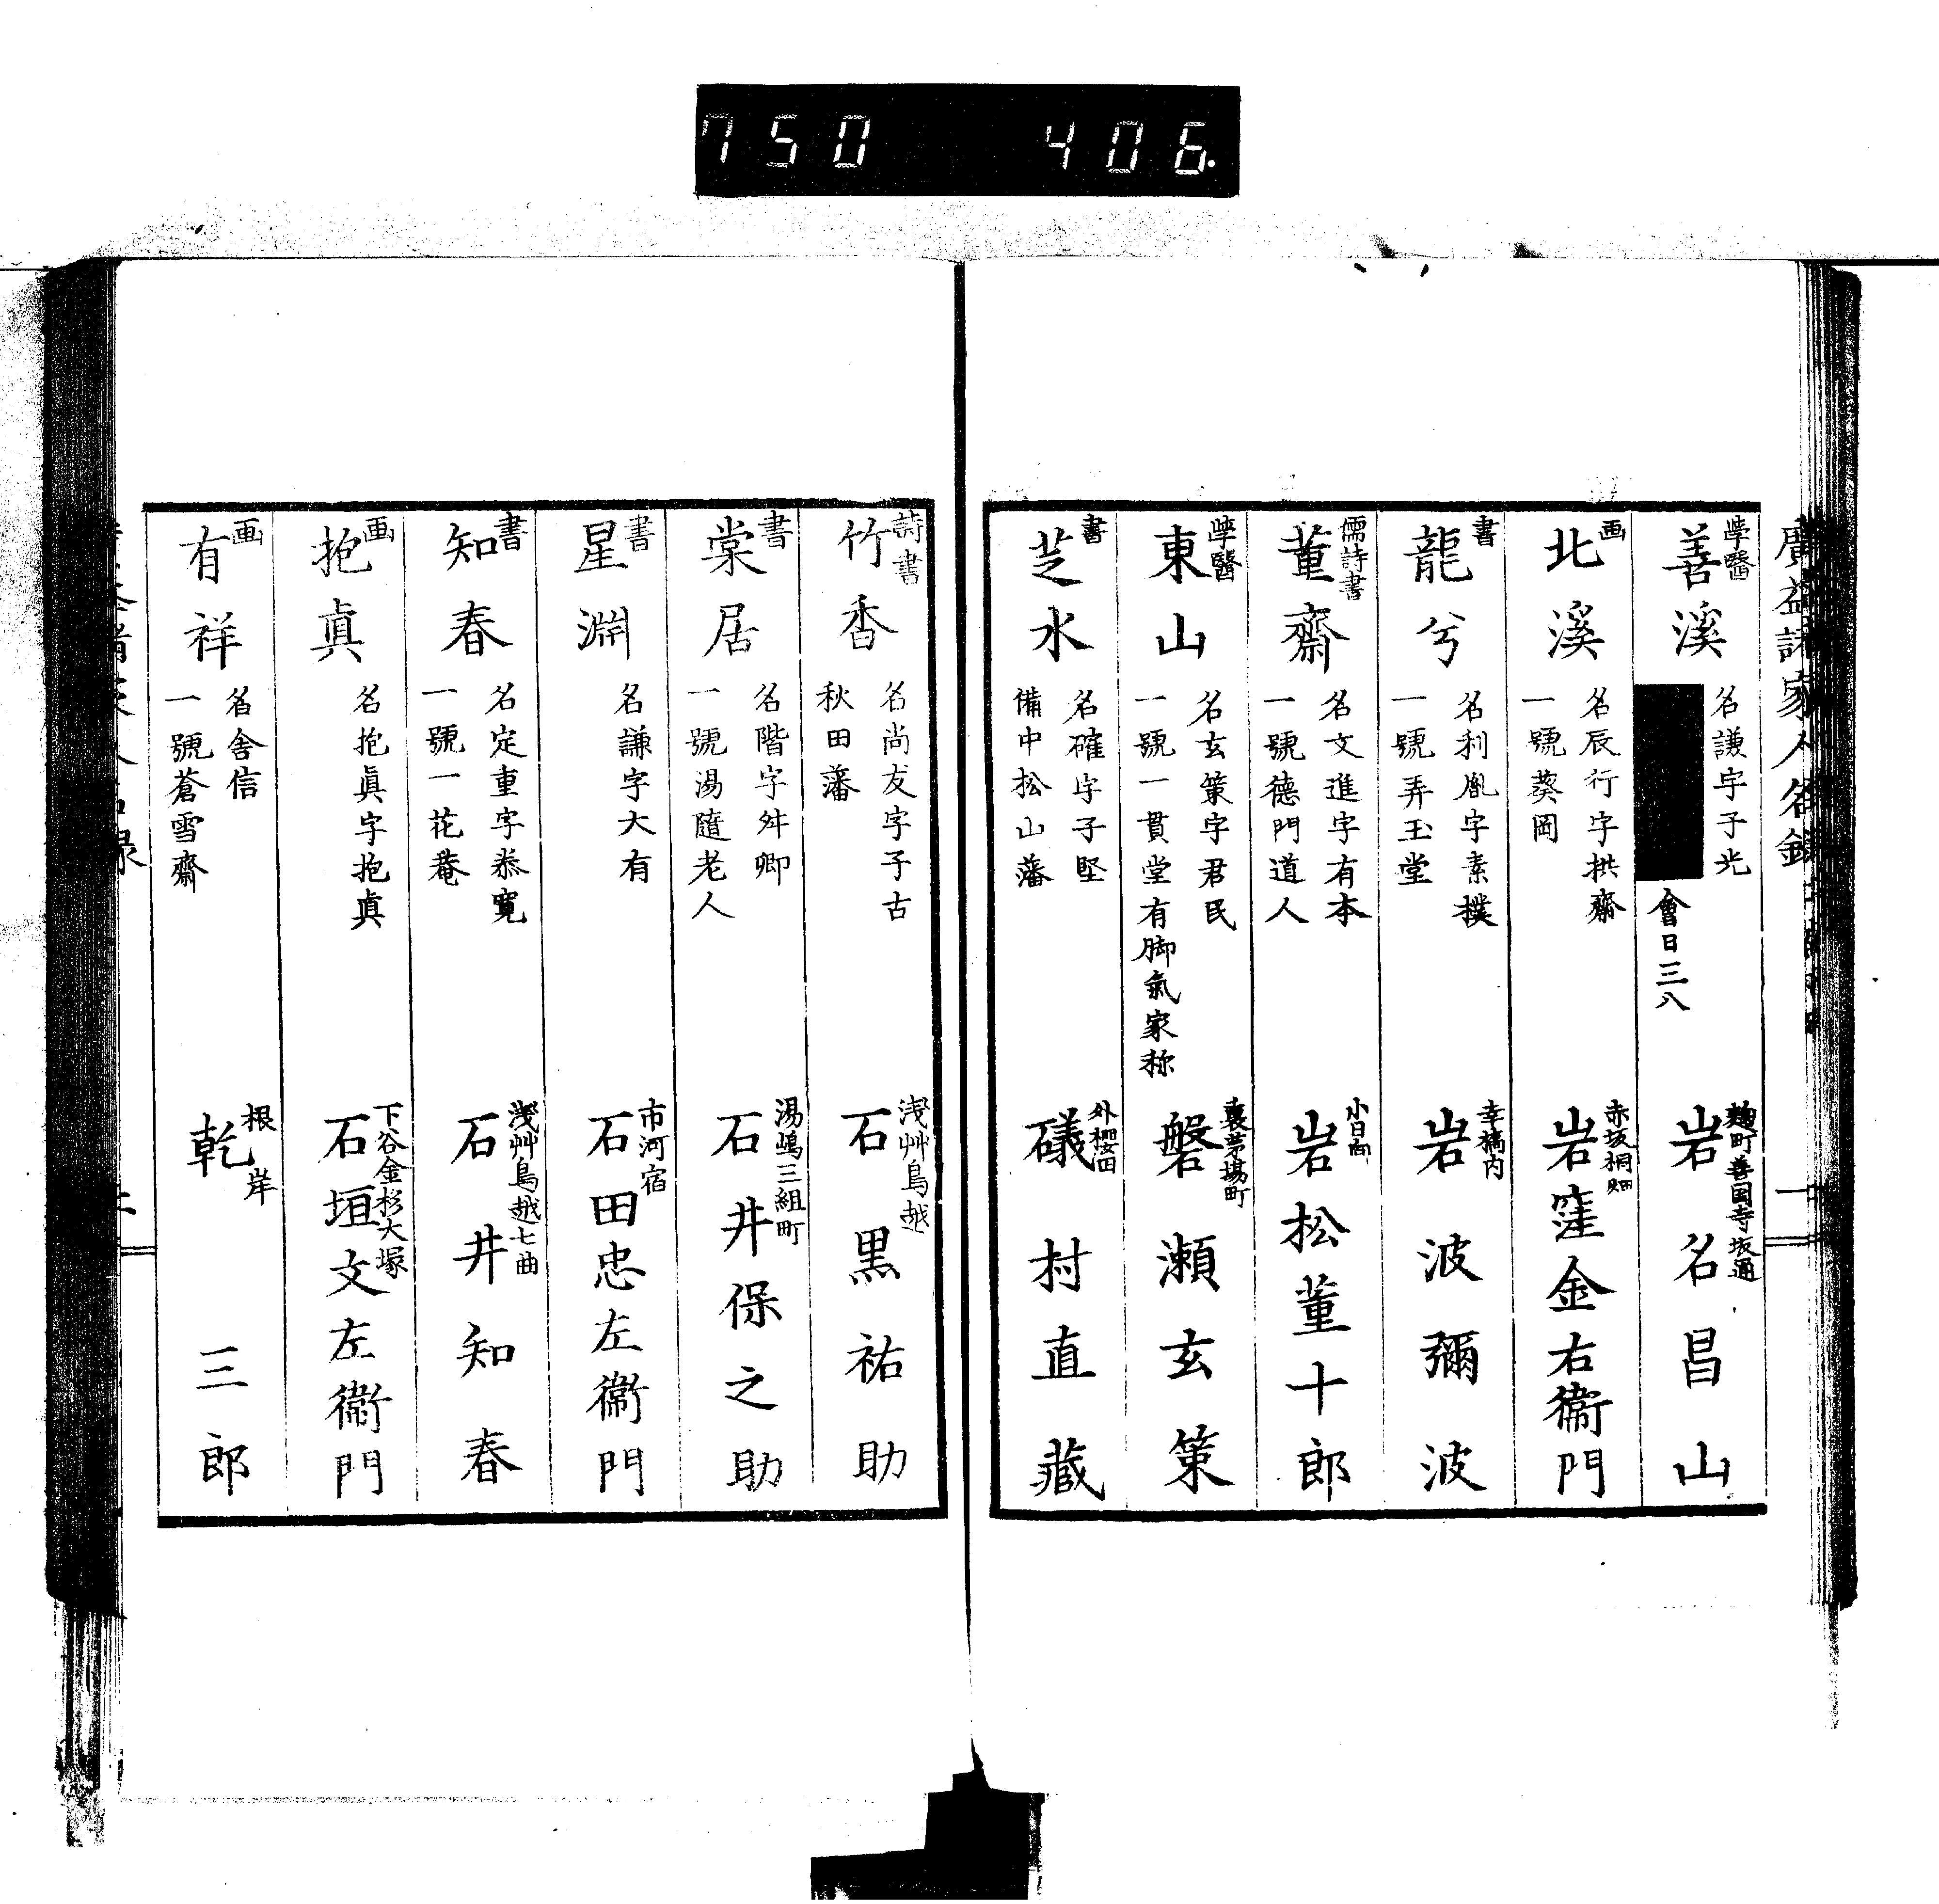 750 406.
廣益諸家人名録
學醫
善溪
名謙字子光
會日三八
麹町善国寺坂通
岩名昌山
画
北溪
名辰行字拱齋
一號葵岡
赤坂桐畑
岩窪金右衞門
書
龍兮
名利胤字素撲
一號弄玉堂
幸橋内
岩波彌波
儒詩書
董齋
名文進字有本
一號德門道人
小日向
岩松董十郎
學醫
東山
名玄策字君民
一號一貫堂有脚氣家称
裏茅場町
磐瀬玄策
書
芝水
名確字子堅
備中松山藩
外桜田
礒村直藏
詩書
竹香
名尚友字子古
秋田藩
浅艸鳥越
石黒祐助
書
棠居
名階字舛卿
一號湯隨老人
湯嶋三組町
石井保之助
書
星淵
名謙字大有
市河宿
石田忠左衞門
書
知春
名定重字恭寛
一號一花菴
浅艸鳥越七曲
石井知春
画
抱眞
名抱眞字抱眞
下谷金杉大塚
石垣文左衞門
画
有祥
名舎信
一號蒼雪齋
根岸
乾三郎